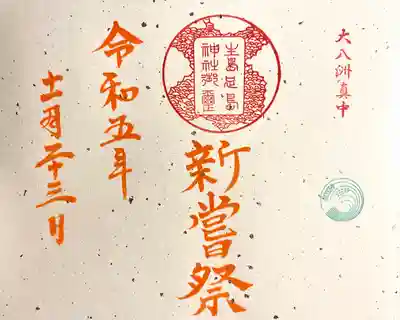 大八洲真中
生島足島
神社御璽
新嘗祭
令和五年
十一月二十三日